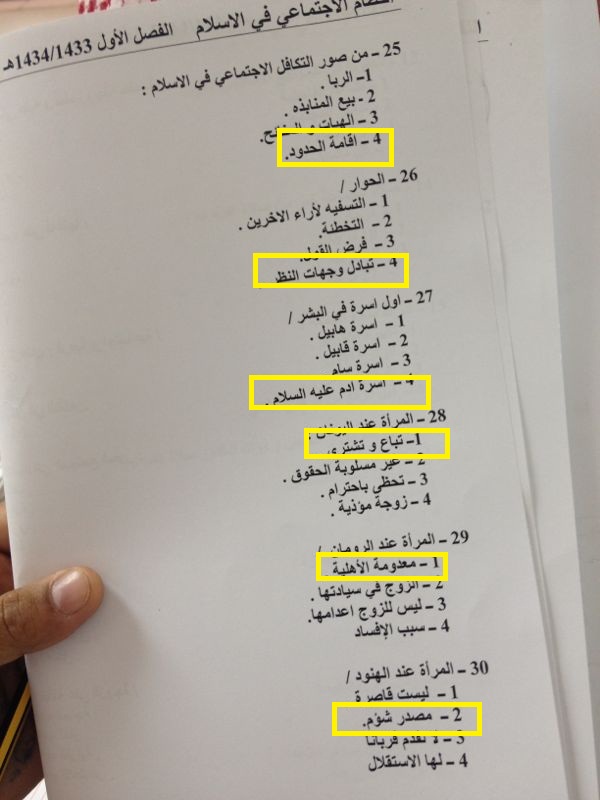 النظام الاجتماعي في الاسلام الفصل الأول 1434/1433هـ
25 – من صور التكافل الاجتماعي في الاسلام :
1– الربا .
2 - بيع المنابذه .
3 – الهبات و
4 – اقامة الحدود.
26 – الحوار /
1 – التسفيه لأراء الاخرين .
2 – التخطئة.
3 – فرض القول.
4 – تبادل وجهات النظر .
27 – اول اسرة في البشر /
1 – اسرة هابيل .
2 – اسرة قابيل .
3 – اسرة سام
4 – اسرة ادم عليه السلام .
28 – المرأة عند اليونان .
1– تباع و تشترى
2 – غير مسلوبة الحقوق .
3 – تحظي باحترام .
4 – زوجة مؤذية .
29 – المرأة عند الرومان /
1 – معدومة الأهلية .
2 – الزوج في سيادتها .
3 – ليس للزوج اعدامها.
4 – سبب الإفساد
30 – المرأة عند الهنود /
1 – ليست قاصرة
2 – مصدر شؤم.
3 – لا تقدم قربانا
4 – لها الاستقلال